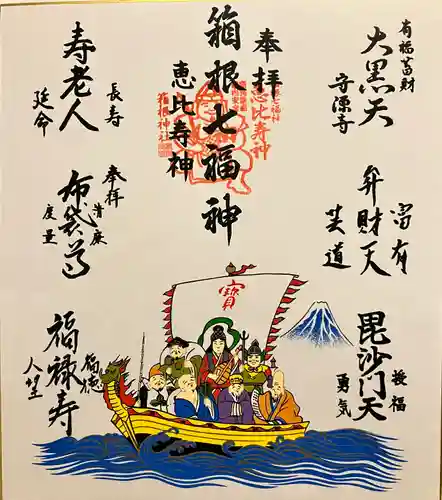 有福蓄財
大黒天
守源寺
奉拝
箱根七福神
恵比寿神
恵比寿神
箱根神社
寿老人
長寿
延命
弁財天
富有
芸道
奉拝
布袋尊
清廉
度量
毘沙門天
授福
勇気
福禄寿
福徳
人望
寳